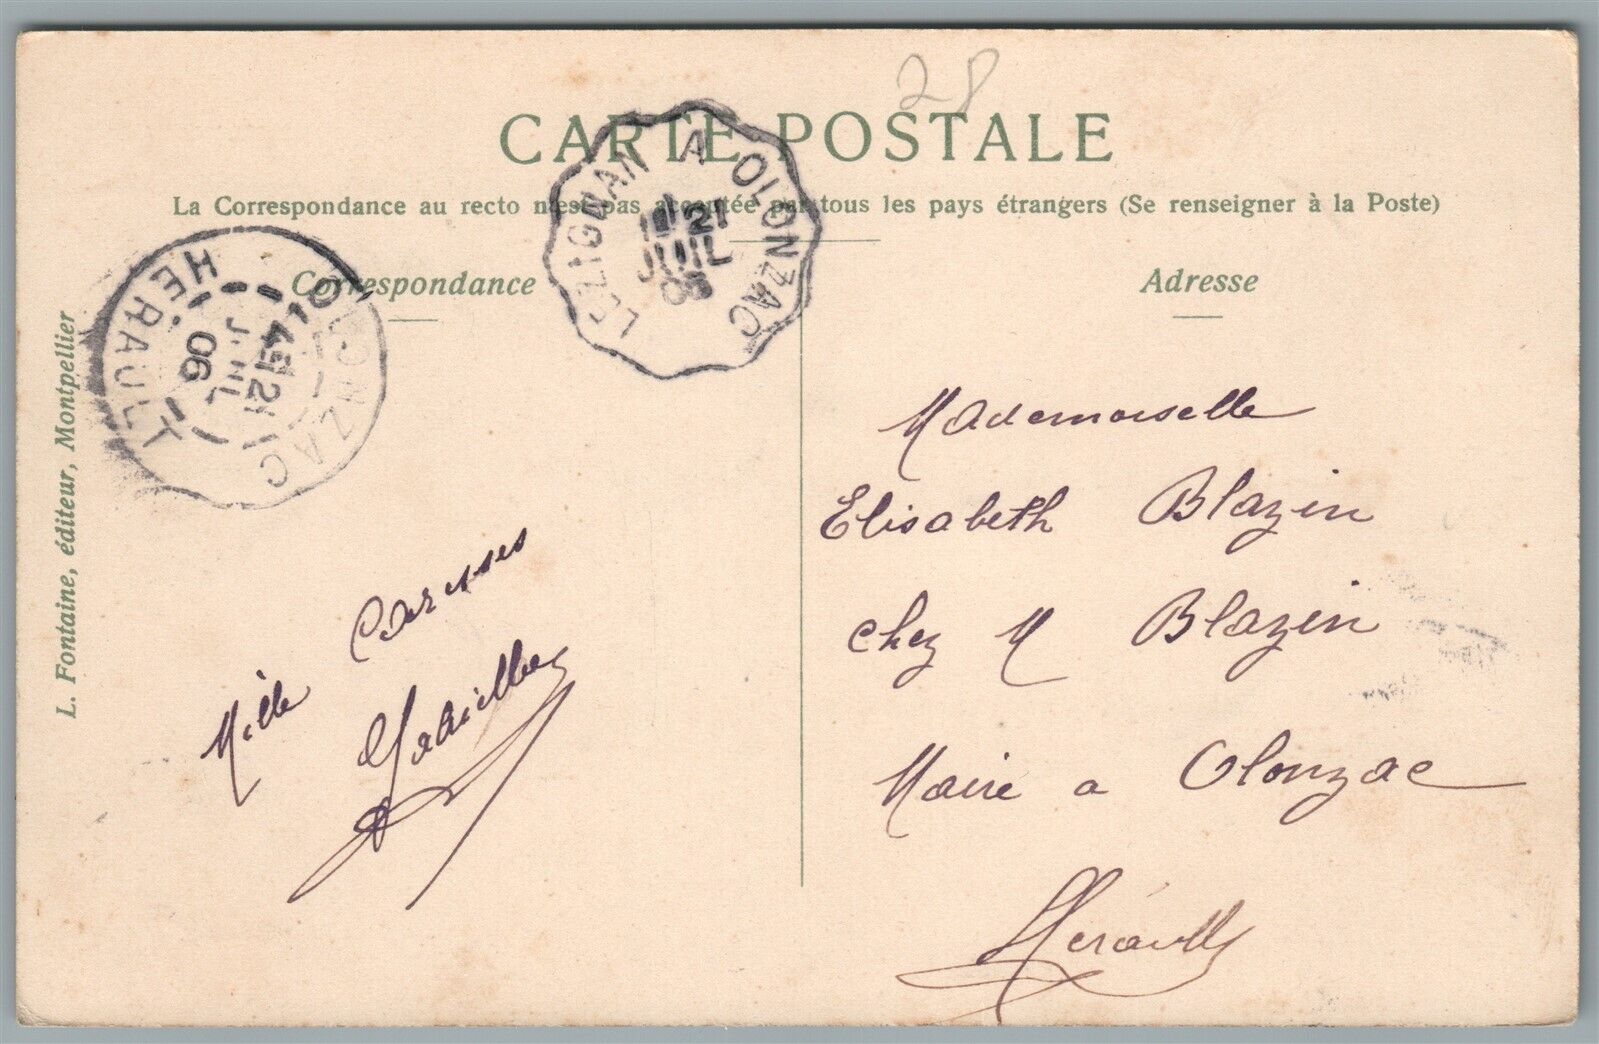 28
CARTE POSTALE
La Correspondance au recto n'est pas acceptée par tous les pays étrangers (Se renseigner à la Poste)
LEZIGNAN A OLONZAC
21
JUIL
06
OLONZAC
HÉRAULT
21
JUIL
06
Correspondance
Adresse
L. Fontaine, éditeur, Montpellier
Mille Caresses
Mademoiselle
Elisabeth Blazin
chez M Blazin
Maire a Olonzac
Herault